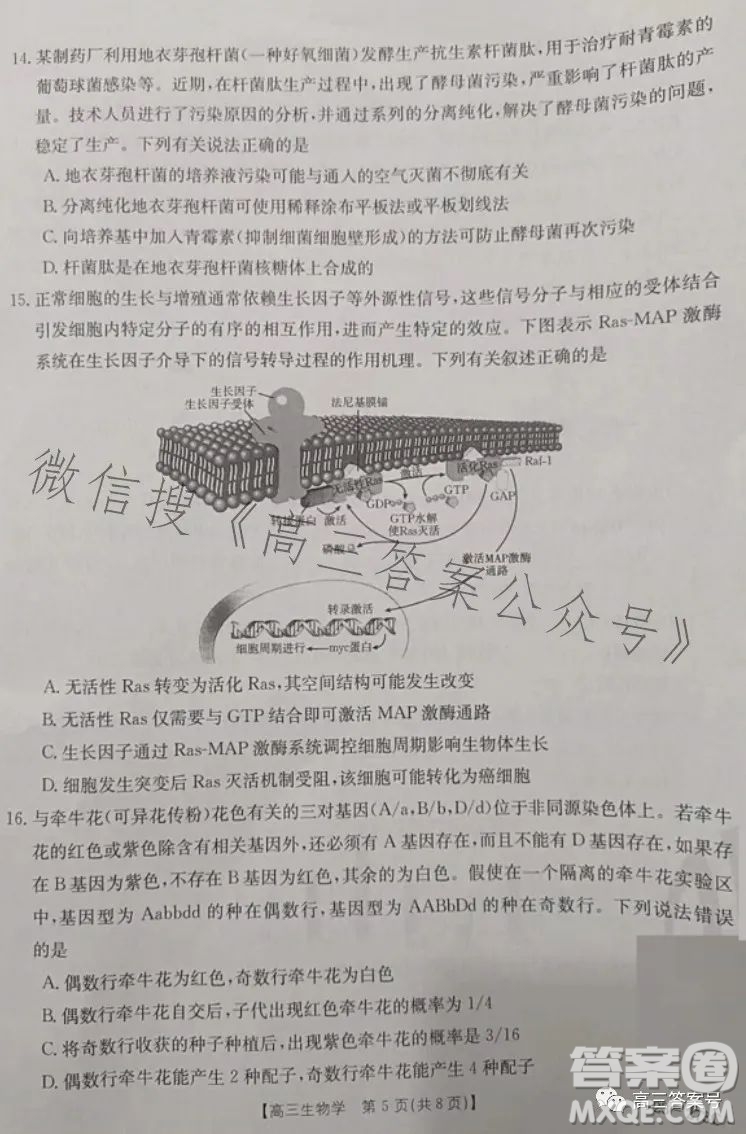 14. 某制药厂利用地衣芽孢杆菌(一种好氧细菌)发酵生产抗生素杆菌肽,用于治疗耐青霉素的
葡萄球菌感染等。近期,在杆菌肽生产过程中,出现了酵母菌污染,严重影响了杆菌肽的产
量。技术人员进行了污染原因的分析,并通过系列的分离纯化,解决了酵母菌污染的问题,
稳定了生产。下列有关说法正确的是
A. 地衣芽孢杆菌的培养液污染可能与通入的空气灭菌不彻底有关
B. 分离纯化地衣芽孢杆菌可使用稀释涂布平板法或平板划线法
C. 向培养基中加入青霉素(抑制细菌细胞壁形成)的方法可防止酵母菌再次污染
D. 杆菌肽是在地衣芽孢杆菌核糖体上合成的
15. 正常细胞的生长与增殖通常依赖生长因子等外源性信号,这些信号分子与相应的受体结合
引发细胞内特定分子的有序的相互作用,进而产生特定的效应。下图表示 Ras-MAP 激酶
系统在生长因子介导下的信号转导过程的作用机理。下列有关叙述正确的是
生长因子
生长因子受体
法尼基膜锚
无活性Ras
激活
活化Ras
Raf-1
GDP
GTP
GAP
转接蛋白
激活
GTP水解
使Ras灭活
磷酸
激活MAP激酶
通路
转录激活
细胞周期进行
myc蛋白
微信搜《高三答案公众号》
A. 无活性 Ras 转变为活化 Ras,其空间结构可能发生改变
B. 无活性 Ras 仅需要与 GTP 结合即可激活 MAP 激酶通路
C. 生长因子通过 Ras-MAP 激酶系统调控细胞周期影响生物体生长
D. 细胞发生突变后 Ras 灭活机制受阻,该细胞可能转化为癌细胞
16. 与牵牛花(可异花传粉)花色有关的三对基因(A/a,B/b,D/d)位于非同源染色体上。若牵牛
花的红色或紫色除含有相关基因外,还必须有 A 基因存在,而且不能有 D 基因存在,如果存
在 B 基因为紫色,不存在 B 基因为红色,其余的为白色。假使在一个隔离的牵牛花实验区
中,基因型为 Aabbdd 的种在偶数行,基因型为 AABbDd 的种在奇数行。下列说法错误
的是
A. 偶数行牵牛花为红色,奇数行牵牛花为白色
B. 偶数行牵牛花自交后,子代出现红色牵牛花的概率为 1/4
C. 将奇数行收获的种子种植后,出现紫色牵牛花的概率是 3/16
D. 偶数行牵牛花能产生 2 种配子,奇数行牵牛花能产生 4 种配子
【高三生物学 第 5 页(共 8 页)】
答案圈
高三答案号
MXQE.COM